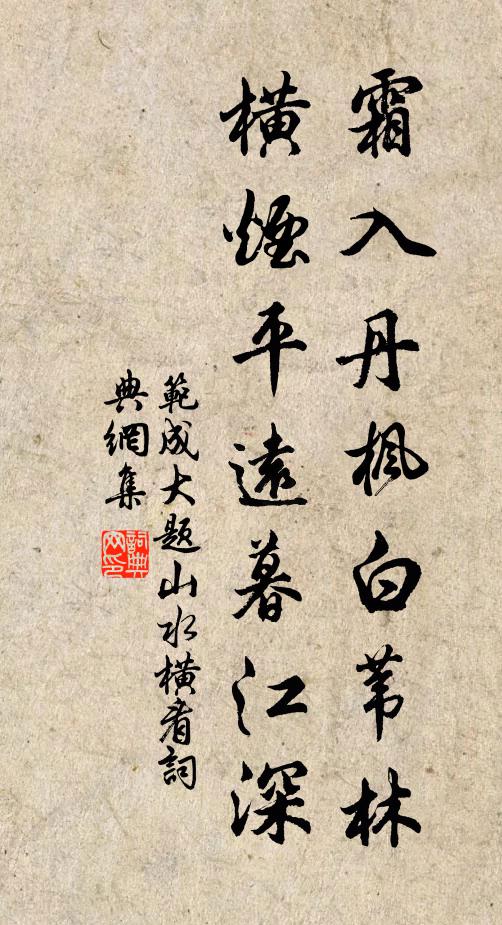 霜入丹楓白苇林
橫煙平遠暮江深
範成大题山水橫看詞
典網集
詞典
网印